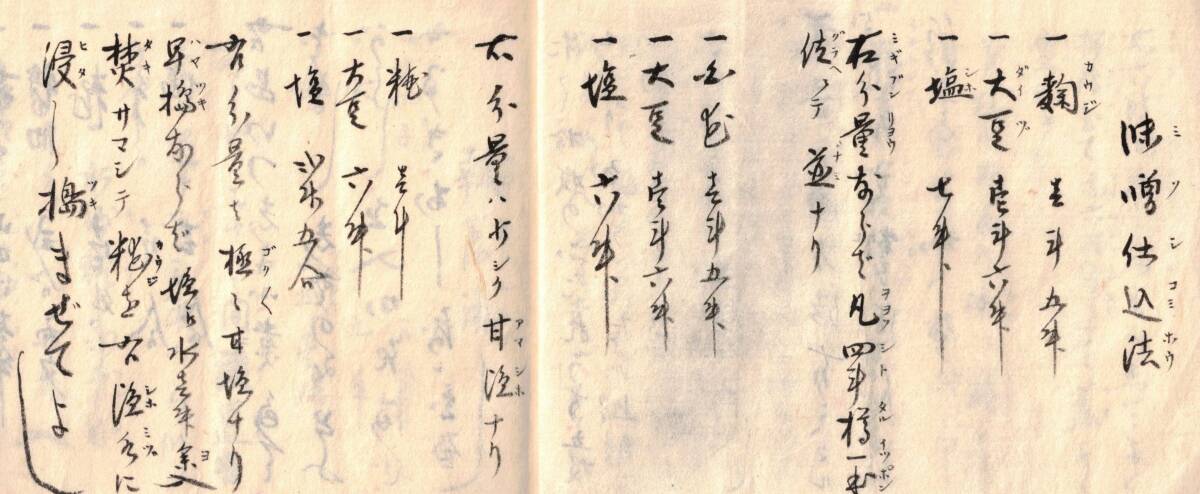 味噌仕込法
一麹 壱斗五升
一大豆 壱斗六升
一塩 七升
右分量ならば凡四斗樽一本
位ノテ並ナリ
一 壱斗五升
一大豆 壱斗六升
一塩 六升
右分量ハ少シク甘塩ナリ
一糀 壱斗
一大豆 六升
一塩 弐升五合
右分量ハ極く甘塩ナリ
早搗ならば塩ト水壱升余
焚サマシテ糀を右塩水に
浸し搗まぜてよ